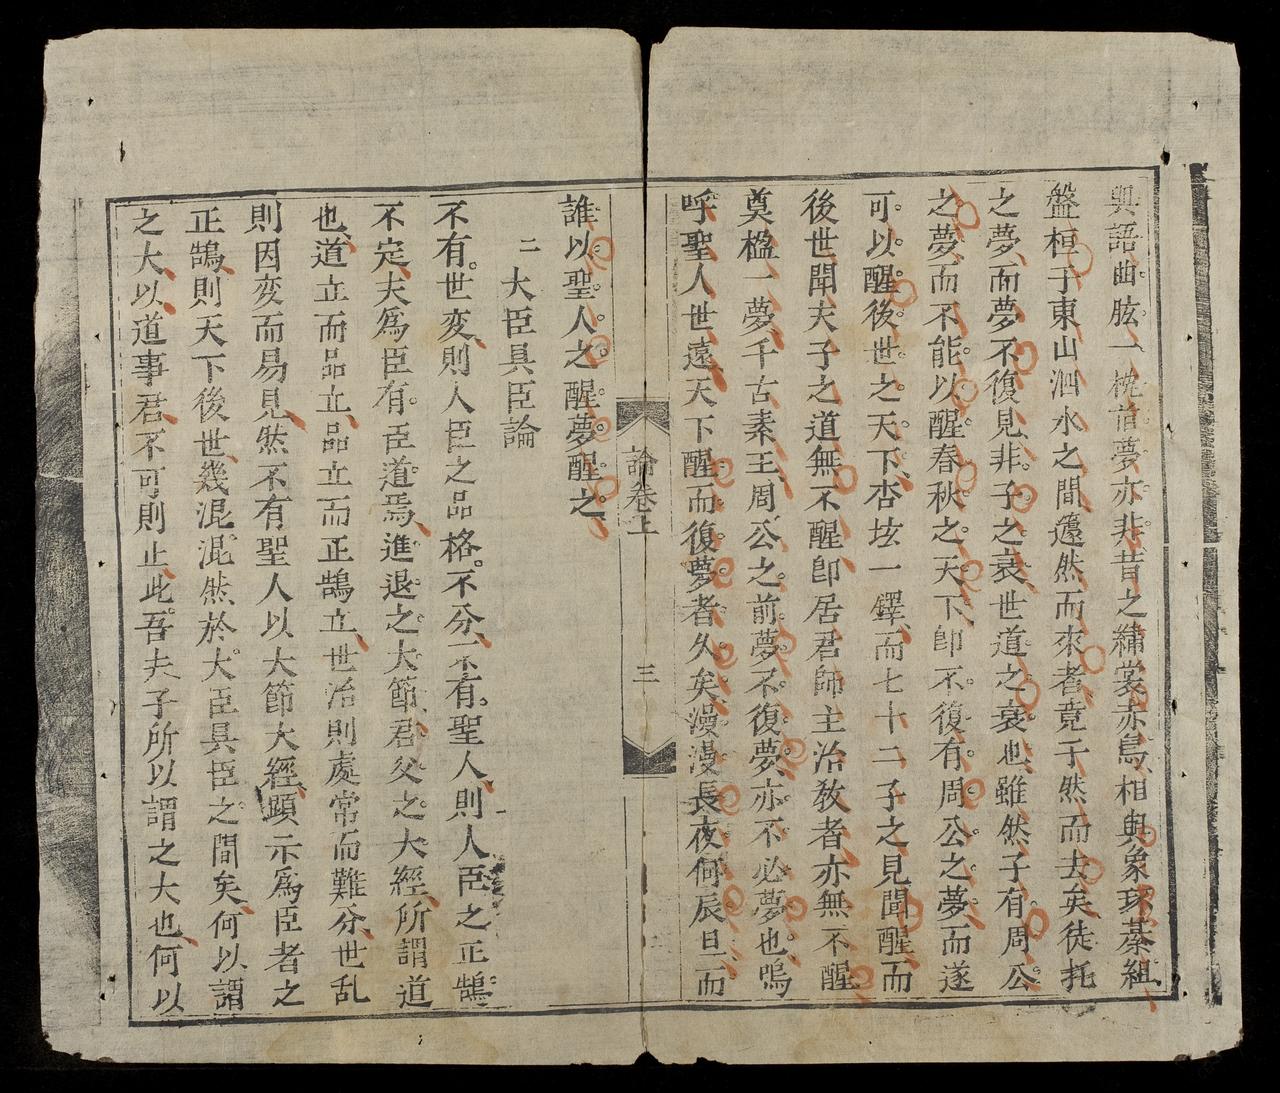 與語曲肱一枕首夢亦非昔之繡裳赤舄相與象環綦組
盤桓于東山泗水之間蘧然而來者竟于然而去矣徒托
之夢而夢不復見非子之衰世道之衰也雖然子有周公
之夢而不能以醒春秋之天下卽不復有周公之夢而遂
可以醒後世之天下杏坛一鐸而七十二子之見聞醒而
後世聞夫子之道無不醒卽居君師主治敎者亦無不醒
奠楹一夢千古素王周公之前夢不復夢亦不必夢也嗚
呼聖人世遠天下醒而復夢者久矣漫漫長夜何辰旦而
論卷上
三
誰以聖人之醒夢醒之
二大臣具臣論
不有世変則人臣之品格不分不有聖人則人臣之正鵠
不定夫爲臣有臣道焉進退之大節君父之大經所謂道
也道立而品立品立而正鵠立世治則處常而難分世乱
則因変而易見然不有聖人以大節大經顕示爲臣者之
正鵠則天下後世幾混混然於大臣具臣之間矣何以謂
之大以道事君不可則止此吾夫子所以謂之大也何以